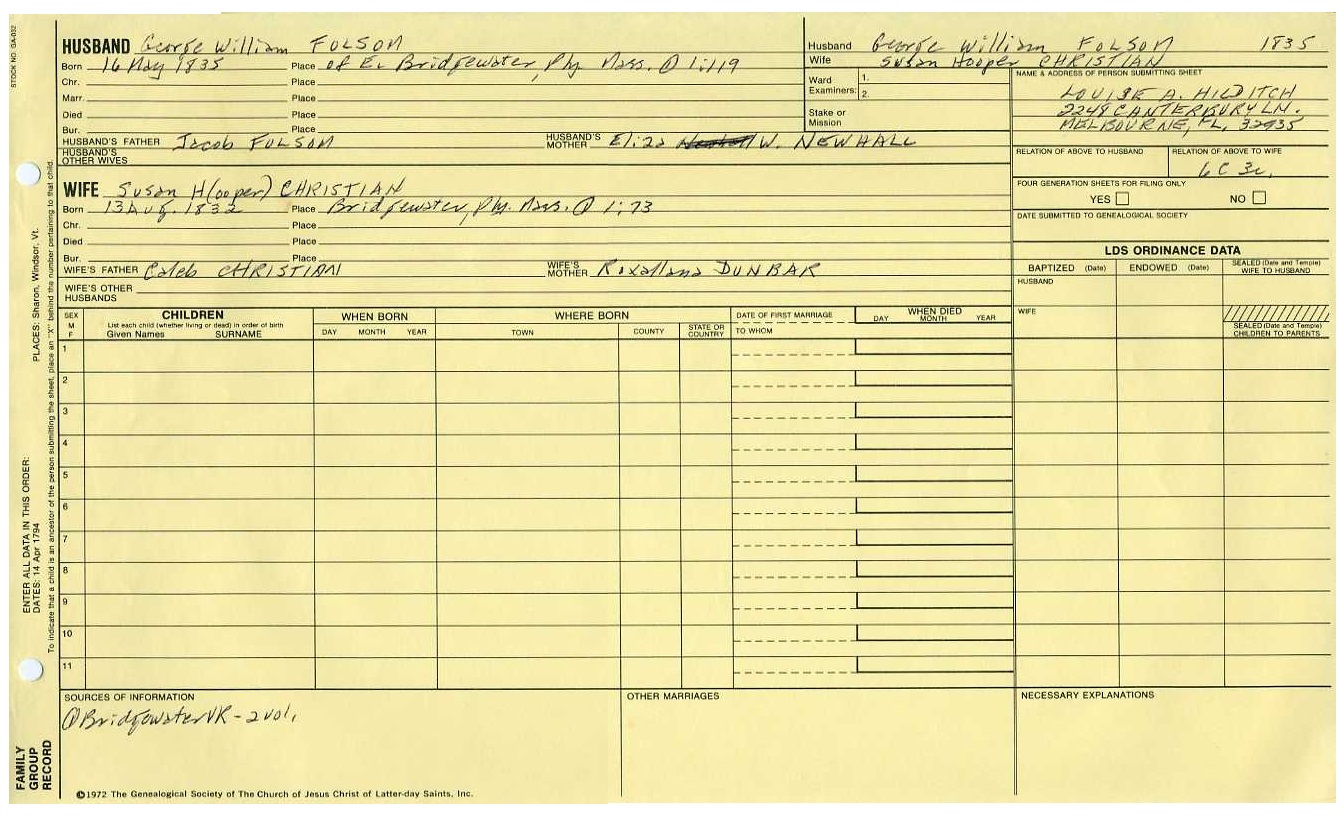 STOCK NO. GA-032
HUSBAND George William FOLSOM
Born 16 May 1835 Place of E. Bridgewater, Ply. Mass. ① 1:119
Chr. Place
Marr. Place
Died Place
Bur. Place
HUSBAND'S FATHER Jacob FOLSOM HUSBAND'S MOTHER Eliza W. NEWHALL
HUSBAND'S OTHER WIVES
Husband George William FOLSOM 1835
Wife Susan Hooper CHRISTIAN
Ward Examiners: 1.
2.
Stake or Mission
NAME & ADDRESS OF PERSON SUBMITTING SHEET
LOUISE A. HILDITCH
2249 CANTERBURY LN.
MELBOURNE, FL. 32935
RELATION OF ABOVE TO HUSBAND RELATION OF ABOVE TO WIFE
6C 3r.
FOUR GENERATION SHEETS FOR FILING ONLY
YES NO
DATE SUBMITTED TO GENEALOGICAL SOCIETY
WIFE Susan H(ooper) CHRISTIAN
Born 13 Aug. 1832 Place Bridgewater, Ply. Mass. ① 1:73
Chr. Place
Died Place
Bur. Place
WIFE'S FATHER Caleb CHRISTIAN WIFE'S MOTHER Roxallana DUNBAR
WIFE'S OTHER HUSBANDS
LDS ORDINANCE DATA
BAPTIZED (Date) ENDOWED (Date) SEALED (Date and Temple) WIFE TO HUSBAND
HUSBAND
WIFE
SEALED (Date and Temple) CHILDREN TO PARENTS
SEX M F
CHILDREN
List each child (whether living or dead) in order of birth
Given Names SURNAME
WHEN BORN
DAY MONTH YEAR
WHERE BORN
TOWN COUNTY STATE OR COUNTRY
DATE OF FIRST MARRIAGE
TO WHOM
WHEN DIED
DAY MONTH YEAR
1
2
3
4
5
6
7
8
9
10
11
SOURCES OF INFORMATION
① Bridgewater VR - 2 vol.
OTHER MARRIAGES
NECESSARY EXPLANATIONS
©1972 The Genealogical Society of The Church of Jesus Christ of Latter-day Saints, Inc.
FAMILY GROUP RECORD
ENTER ALL DATA IN THIS ORDER:
DATES: 14 Apr 1794
PLACES: Sharon, Windsor, Vt.
To indicate that a child is an ancestor of the person submitting the sheet, place an "X" behind the number pertaining to that child.